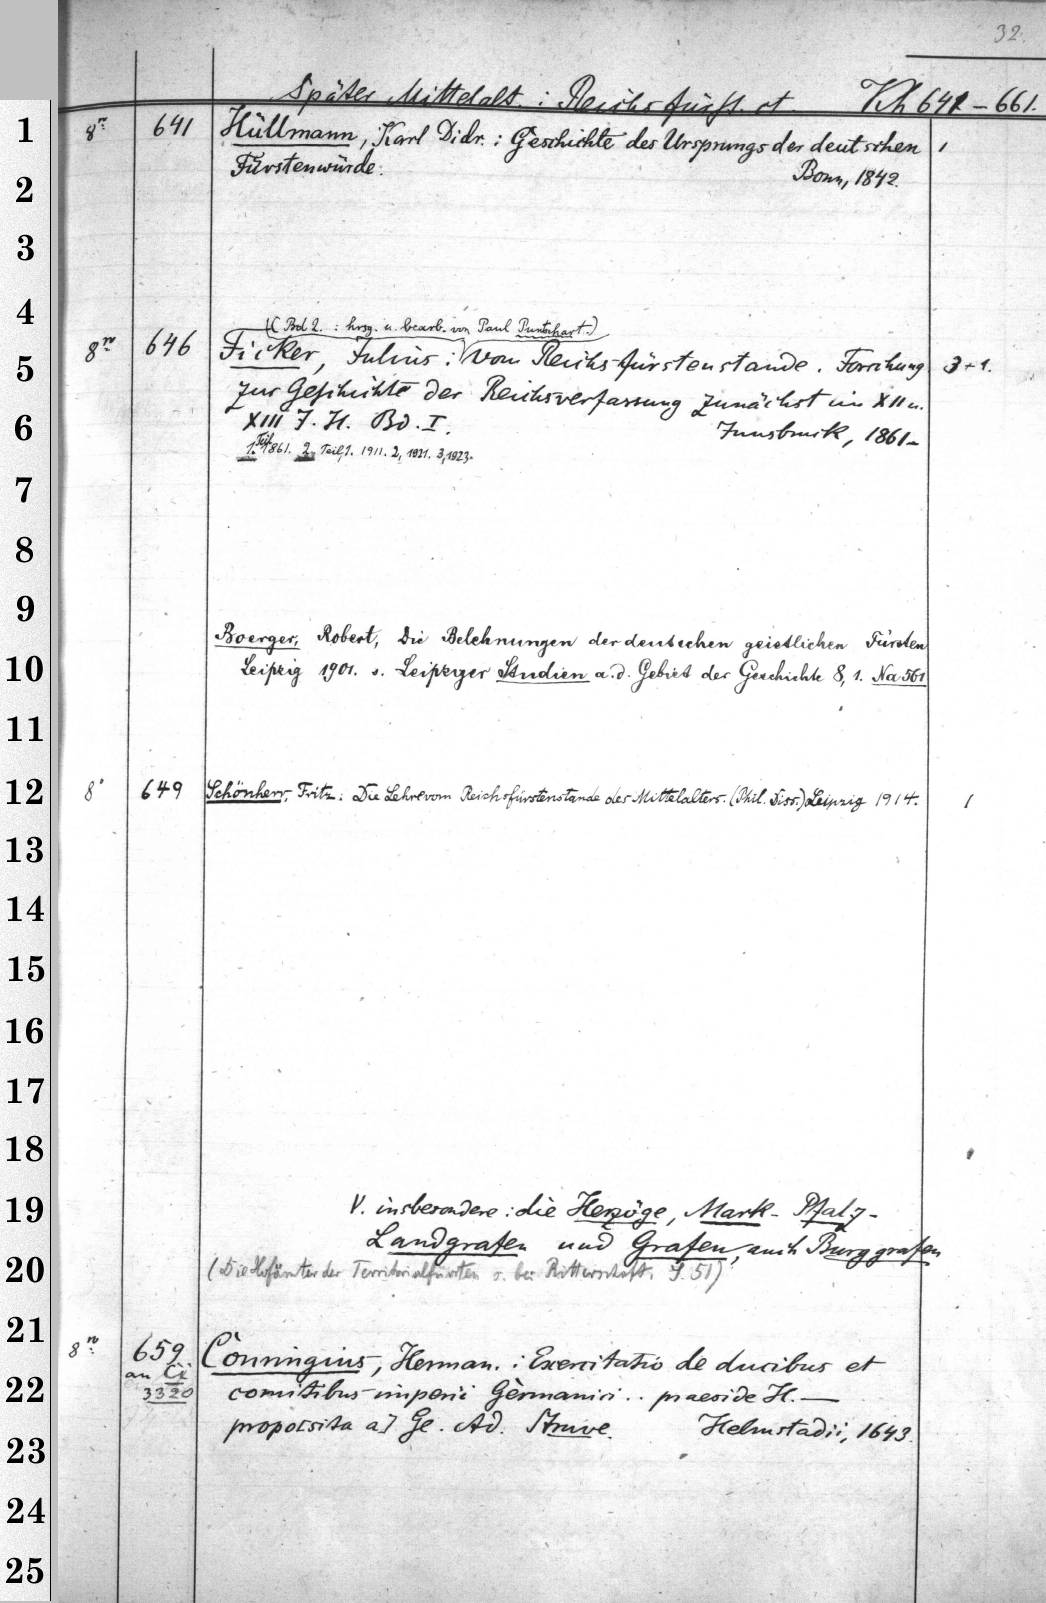 32.
Später Mittelalt. : Reichsfürst. et Kh 641 - 661.
1 8º 641 Hüllmann, Karl Didr. : Geschichte des Ursprungs der deutschen 1
Fürstenwürde. Bonn, 1842.
2
3
4
(Bd 2. : hrsg. u. bearb. von Paul Puntschart.)
5 8º 646 Ficker, Julius : Vom Reichsfürstenstande. Forschung 3+1.
zur Geschichte der Reichsverfassung zunächst im XII u.
6 XIII J. H. Bd. I. Innsbruck, 1861-
1. Teil 1861. 2. Teil, 1. 1911. 2, 1921. 3, 1923.
7
8
9
Boerger, Robert, Die Belehnungen der deutschen geistlichen Fürsten
10 Leipzig 1901. s. Leipziger Studien a. d. Gebiet der Geschichte 8, 1. Na 561
11
12 8º 649 Schönherr, Fritz: Die Lehre vom Reichsfürstenstande des Mittelalters. (Phil. Diss.) Leipzig 1914. 1
13
14
15
16
17
18
19 V. insbesondere : die Herzöge, Mark- Pfalz-
Landgrafen und Grafen, auch Burggrafen
20 (Die Hofämter der Territorialfürsten s. bei Ritterschaft. S. 51)
21
8º 659 Conringius, Herman. : Exercitatio de ducibus et
an Ci
22 3320 comitibus imperii Germanici .. praeside H. —
propossita a] Ge. Ad. Struve. Helmstadii, 1643.
23
24
25